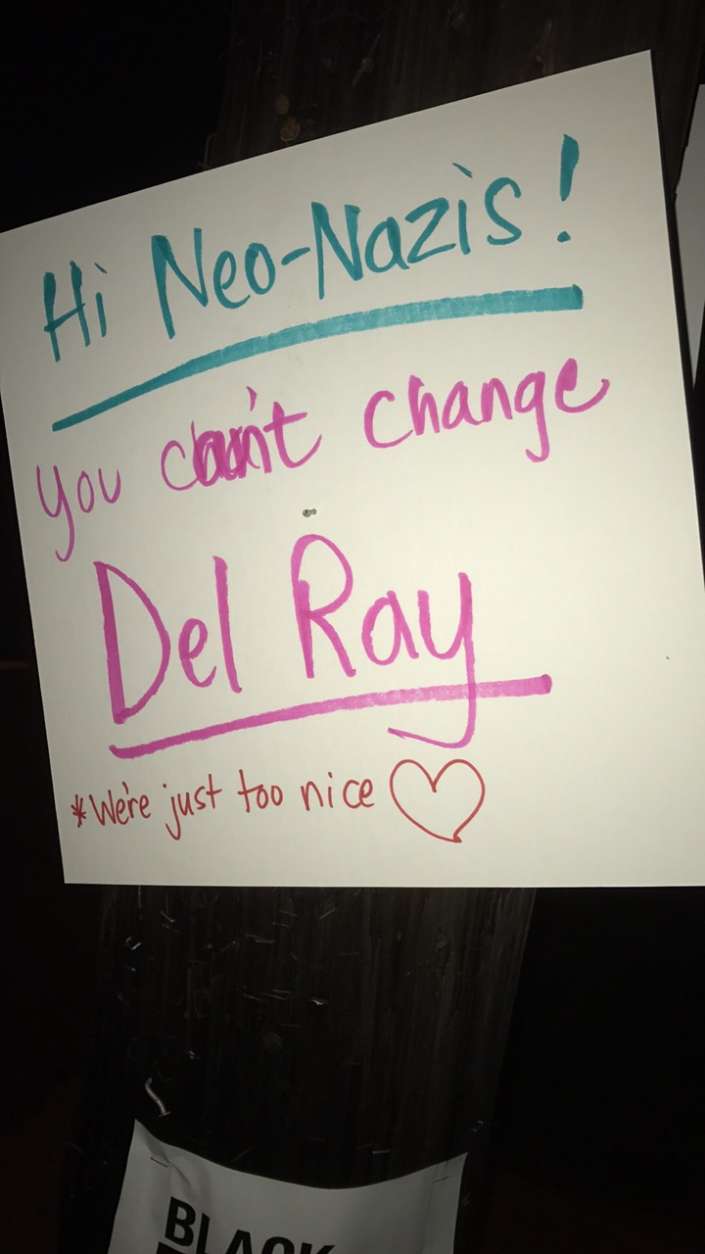 Hi Neo-Nazis!
you can't change
Del Ray
*We're just too nice ♡
BLACK